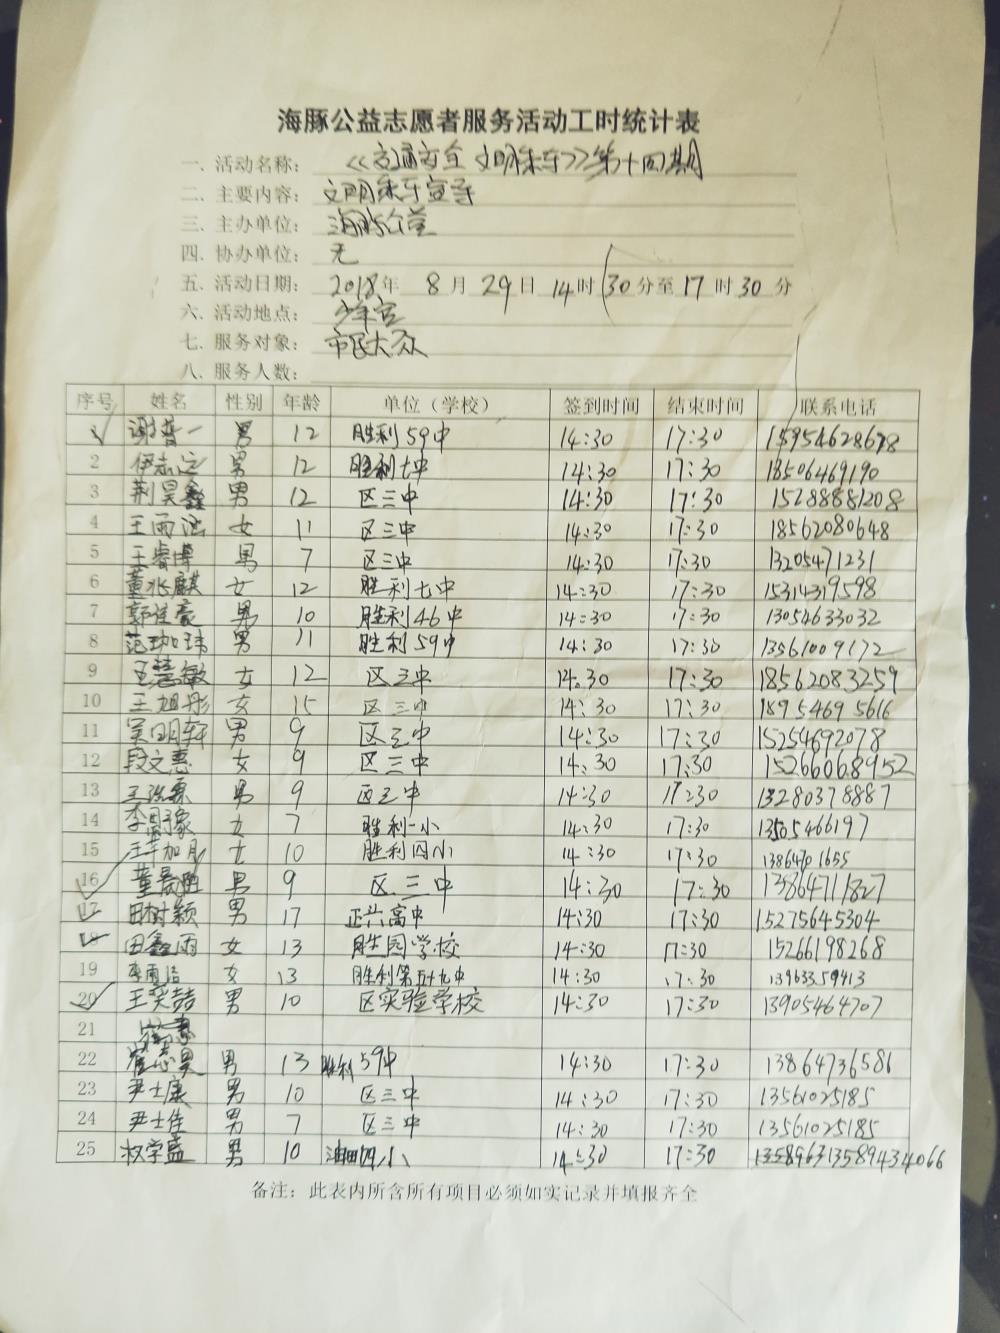 海豚公益志愿者服务活动工时统计表
一. 活动名称: 《交通安全 文明乘车》第十四期
二. 主要内容: 文明乘车宣导
三. 主办单位: 海豚公益
四. 协办单位: 无
五. 活动日期: 2018年 8月 29日 14时30分至17时30分
六. 活动地点: 少年宫
七. 服务对象: 市民大众
八. 服务人数:
序号 姓名 性别 年龄 单位（学校） 签到时间 结束时间 联系电话
1 谢普一 男 12 胜利59中 14:30 17:30 15954628678
2 伊志远 男 12 胜利七中 14:30 17:30 18506469190
3 荆昊鑫 男 12 区三中 14:30 17:30 15288881208
4 王雨涵 女 11 区三中 14:30 17:30 18562080648
5 王睿博 男 7 区三中 14:30 17:30 13205471231
6 董兆麒 女 12 胜利七中 14:30 17:30 15314319598
7 郭佳豪 男 10 胜利46中 14:30 17:30 13054633032
8 范珈玮 男 11 胜利59中 14:30 17:30 13561009172
9 王慧敏 女 12 区三中 14:30 17:30 18562083259
10 王旭彤 女 15 区三中 14:30 17:30 18954695616
11 吴明轩 男 9 区三中 14:30 17:30 15254692078
12 段文惠 女 9 区三中 14:30 17:30 15266068952
13 王 男 9 区三中 14:30 17:30 13280378887
14 李 豫 女 7 胜利一小 14:30 17:30 13505466197
15 王 加月 女 10 胜利四小 14:30 17:30 13864701655
16 董 胜 男 9 区三中 14:30 17:30 13864711827
17 田树颖 男 17 正兴高中 14:30 17:30 15275645304
18 田鑫雨 女 13 胜园学校 14:30 17:30 15266198268
19 李雨洁 女 13 胜利第五十九中 14:30 17:30 13963359413
20 王奕喆 男 10 区实验学校 14:30 17:30 13905464707
21
22 崔志昊 男 13 胜利59中 14:30 17:30 13864736586
23 尹士康 男 10 区三中 14:30 17:30 13561025185
24 尹士佳 男 7 区三中 14:30 17:30 13561025185
25 权学盛 男 10 油田四小 14:30 17:30 13589434066
备注: 此表内所含所有项目必须如实记录并填报齐全